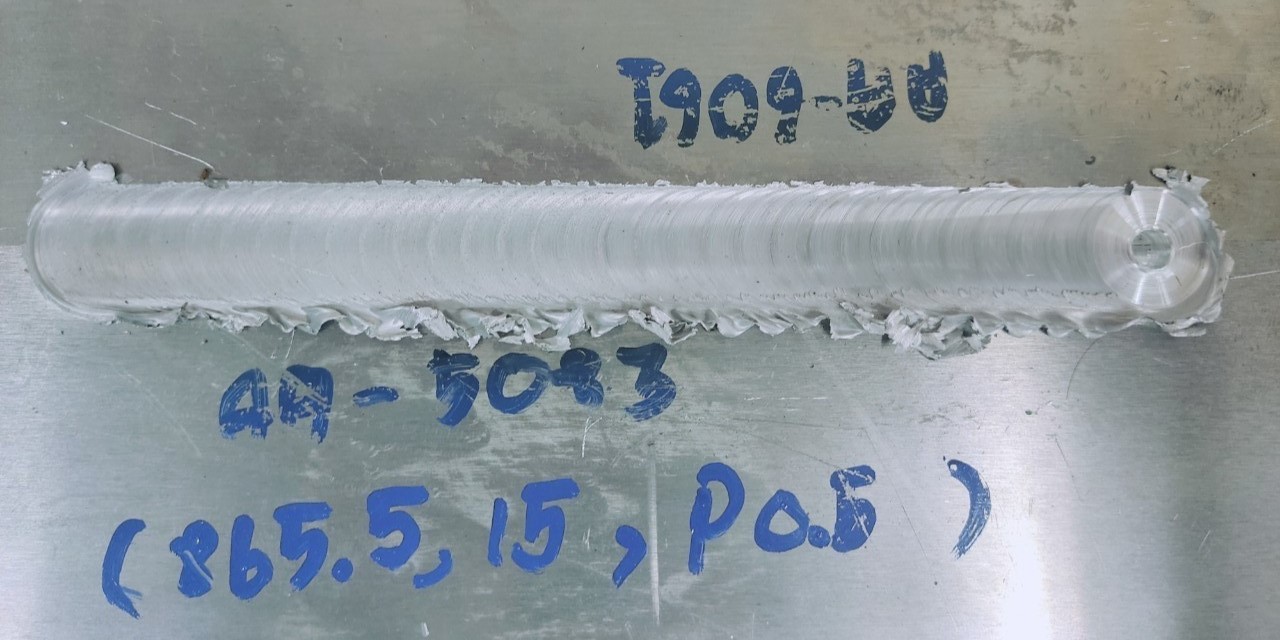 AA-6061
AA-5083
(865.5, 15, P0.5)